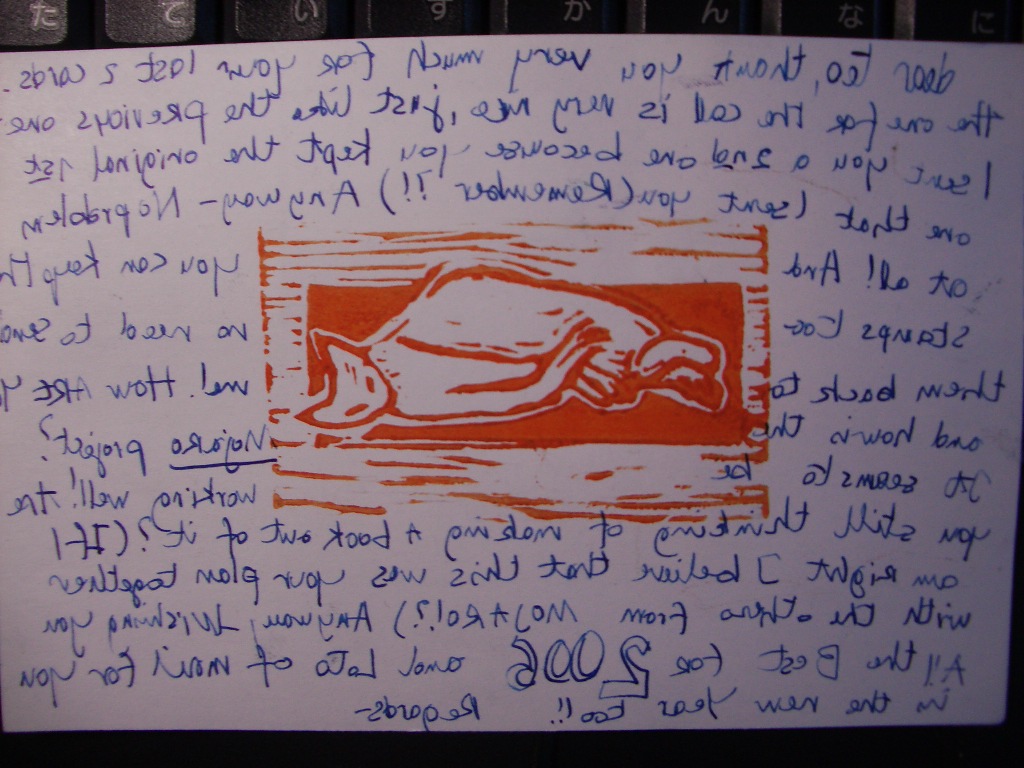 た て い す か ん な に
dear Eo, thank you very much for your last 2 cards.
the one for the call is very nice, just like the previous one
I sent you a 2nd one because you kept the original 1st
one that I sent you (Remember ?!) Anyway - No problem
at all! And you can keep
stamps too - no need to send
them back to me! How ARE
and how is the project?
It seems to be working well! the
you still thinking of making a book out of it? (If I
am right I believe that this was your plan together
with the others from Anyway, Wishing you
All the Best for 2006 and lots of mail for you
in the new year too!! Regards -